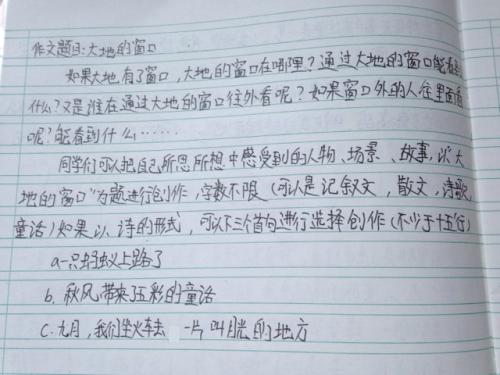 作文题目:大地的窗口
如果大地有了窗口,大地的窗口在哪里?通过大地的窗口能看到
什么?又是谁在通过大地的窗口往外看呢?如果窗口外的人往里面看
呢?能看到什么……
同学们可以把自己所思所想中感受到的人物、场景、故事,以"大
地的窗口"为题进行创作,字数不限(可以是记叙文,散文,诗歌
童话)如果以诗的形式,可以下三个首句进行选择创作(不少于十五行)
a一只蚂蚁上路了
b.秋风带来了五彩的童话
c.九月,我们坐火车去 一片叫 的地方